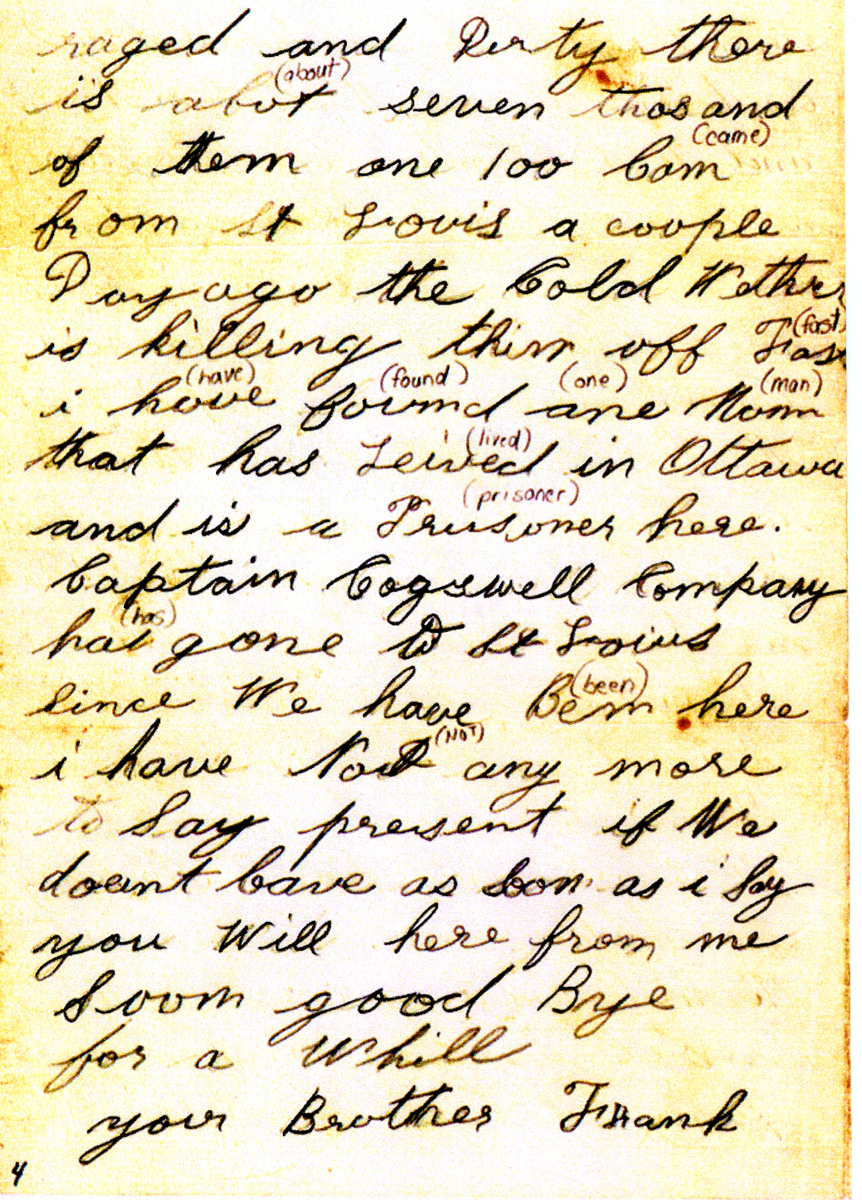 raged and Derty there
(about)
is abot seven thosand
(came)
of them one 100 Com
from St Lovis a coople
Day ago the Cold Wether
is killing thim off Fast (fast)
(have) (found) (one) (man)
i hove fovmd ane Mom
(lived)
that has Leived in Ottawa
(prisoner)
and is a Prusoner here.
Captain Cogswell Company
(has)
has gone to St Loius
(been)
Since We have Bem here
(NOT)
i have Not any more
to Say present if We
doent Cave as soon as i Say
you Will here from me
Soom good Bye
for a Whill
your Brother Frank
4